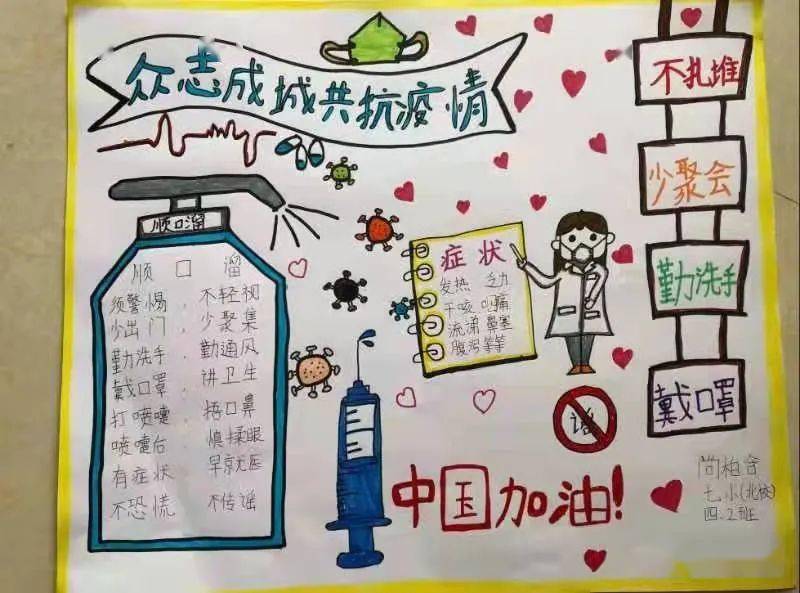 众志成城共抗疫情
顺口溜
顺 口 溜
须警惕，不轻视
少出门，少聚集
勤洗手，勤通风
戴口罩，讲卫生
打喷嚏，捂口鼻
喷嚏后，慎揉眼
有症状 早就医
不恐慌 不传谣
症状
发热 乏力
干咳 咽痛
流涕 鼻塞
腹泻等等
谣
中国加油!
不扎堆
少聚会
勤洗手
戴口罩
七小(北校)
四.2班